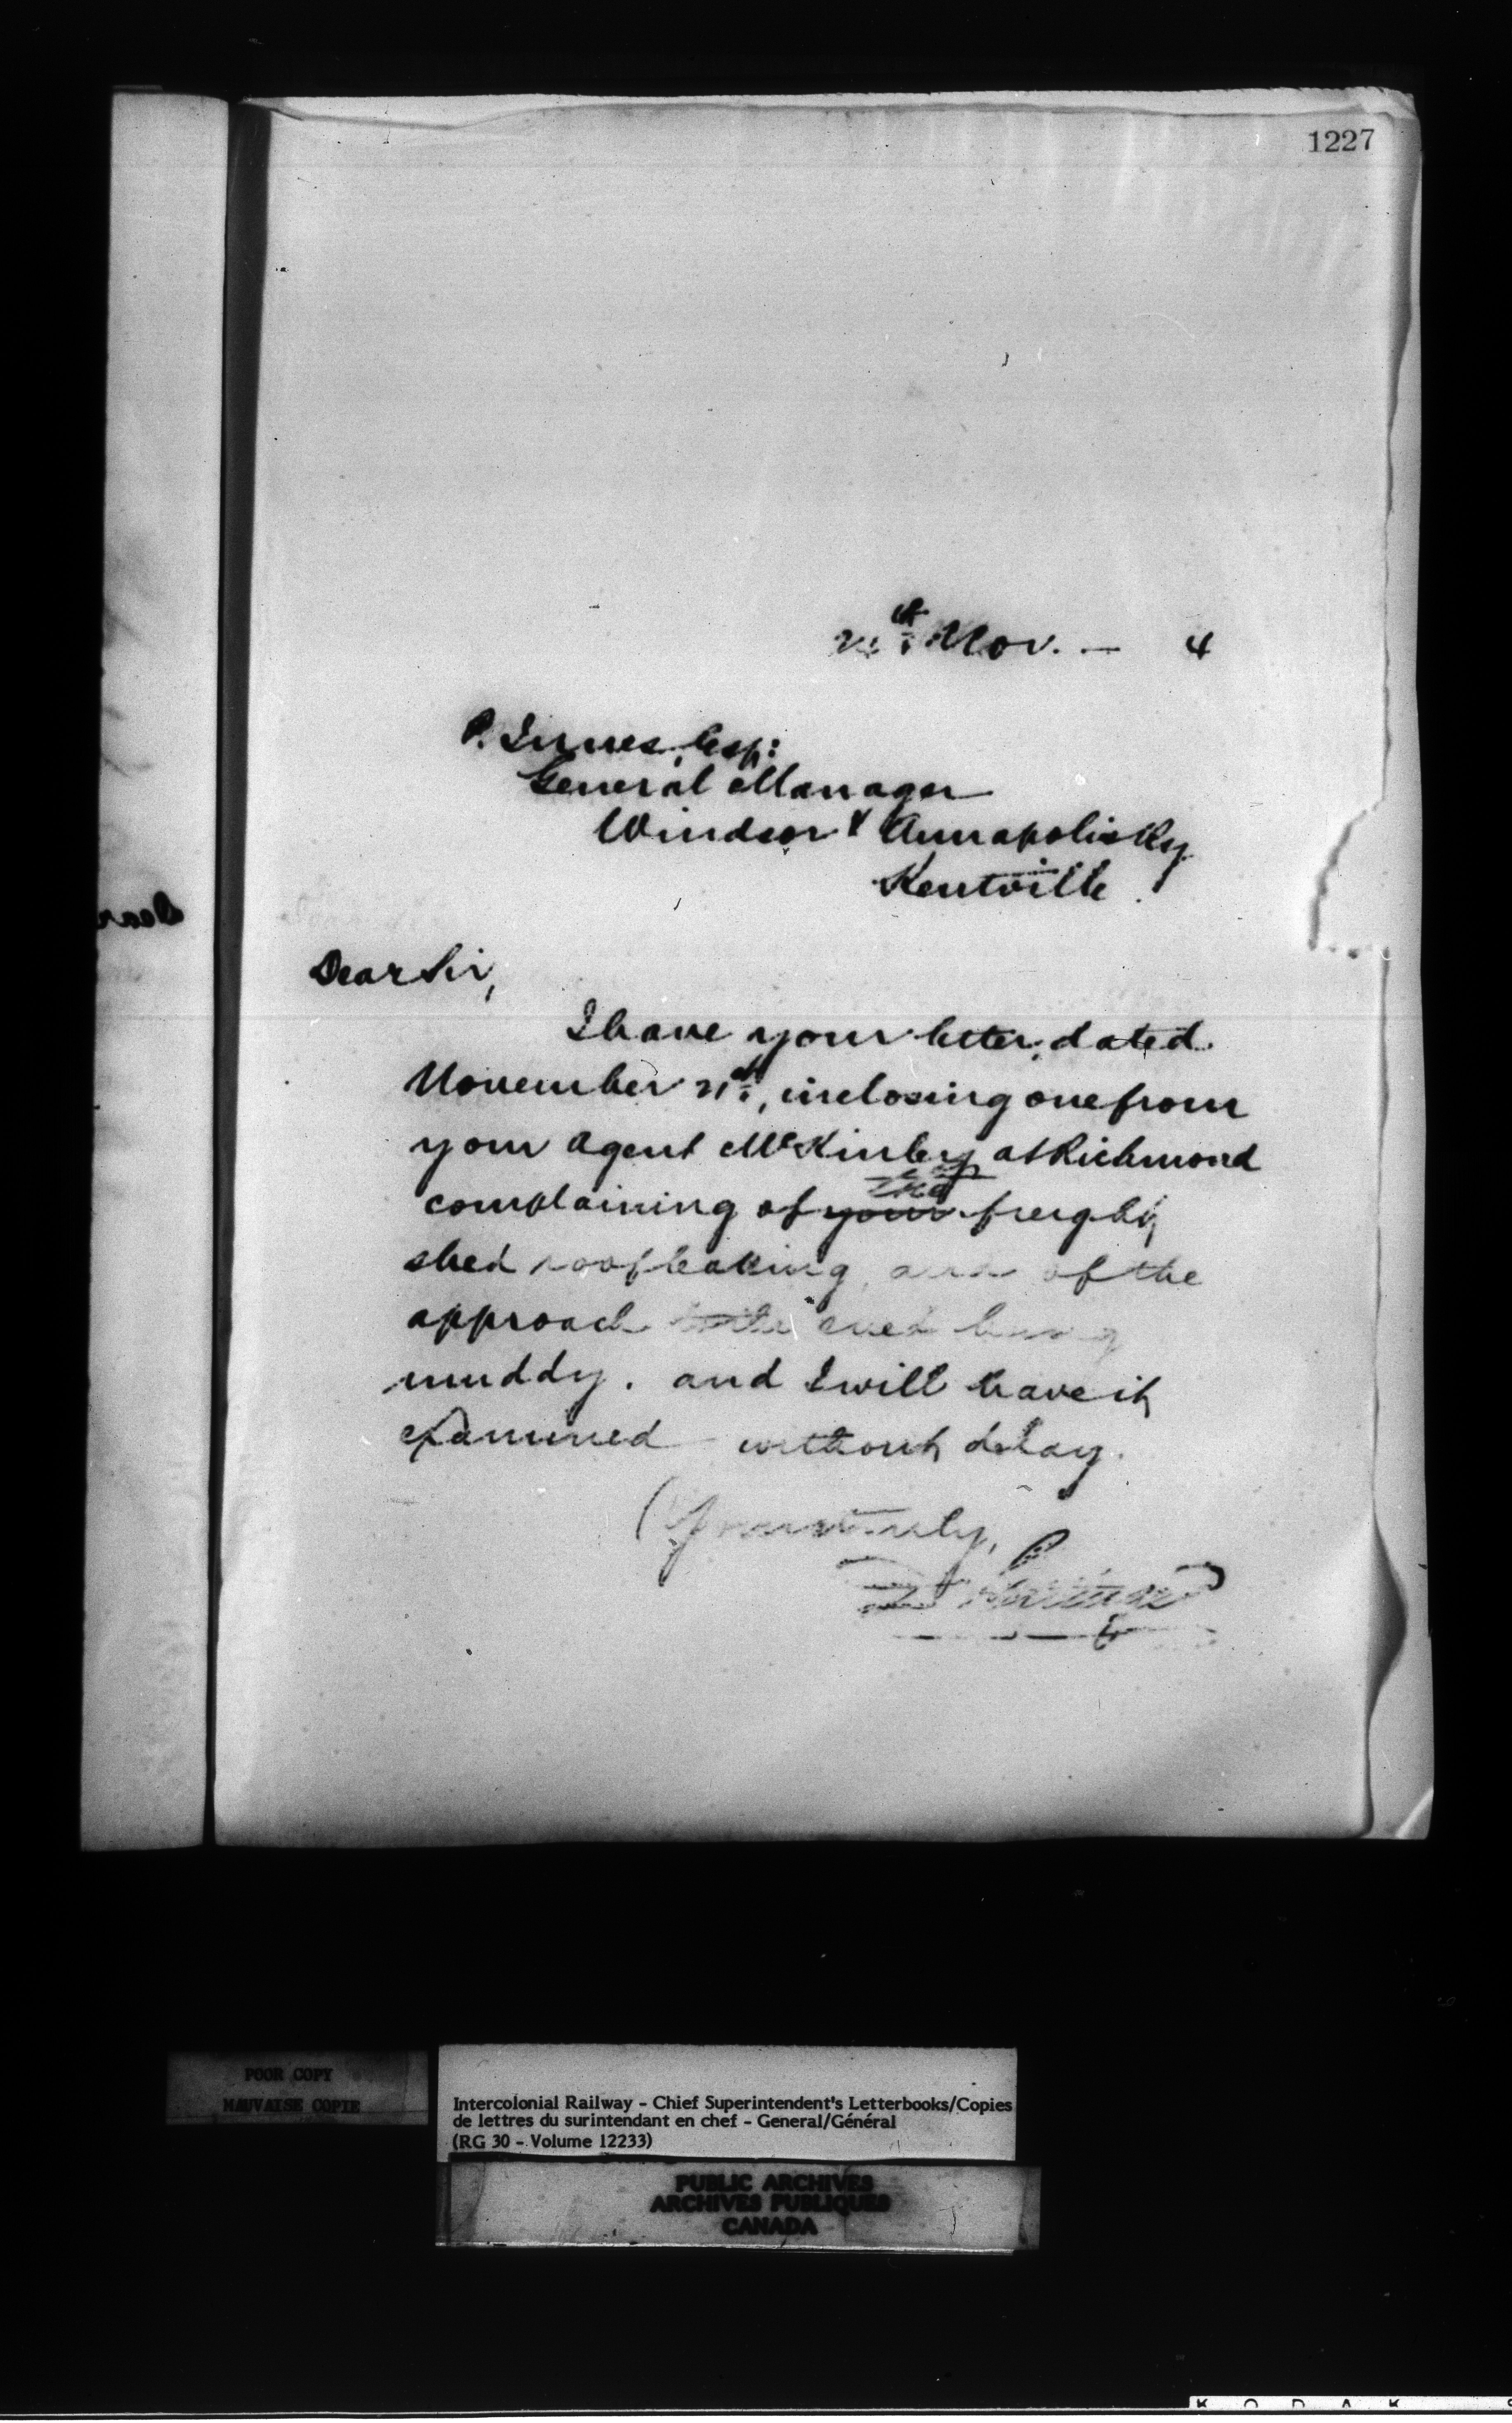 1227
Nov. — 4
P. Innes, Esq:
General Manager
Windsor & Annapolis Ry
Kentville.
Dear Sir,
I have your letter, dated
November 21st, inclosing one from
your agent McKinley at Richmond
complaining of the your freight
shed roof leaking, and of the
approach to the shed being
muddy. and I will have it
examined without delay.
Yours truly,
Dear
POOR COPY
MAUVAISE COPIE
Intercolonial Railway - Chief Superintendent's Letterbooks/Copies
de lettres du surintendant en chef - General/Général
(RG 30 - Volume 12233)
PUBLIC ARCHIVES
ARCHIVES PUBLIQUES
CANADA
K O D A K